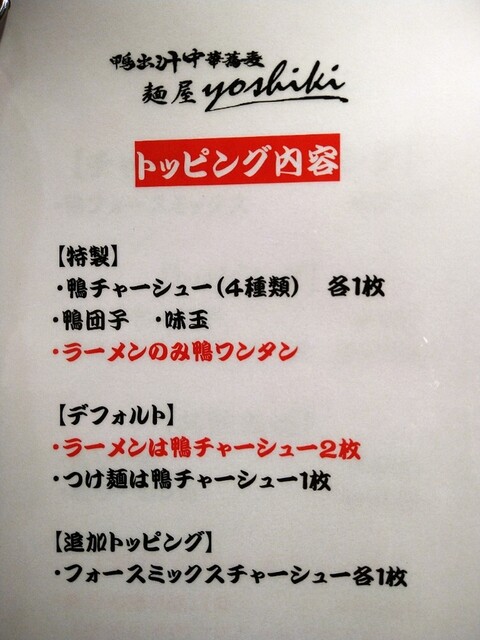 鴨出汁中華蕎麦
麺屋yoshiki
トッピング内容
【特製】
・鴨チャーシュー(4種類) 各1枚
・鴨団子 ・味玉
・ラーメンのみ鴨ワンタン
【デフォルト】
・ラーメンは鴨チャーシュー2枚
・つけ麺は鴨チャーシュー1枚
【追加トッピング】
・フォースミックスチャーシュー各1枚